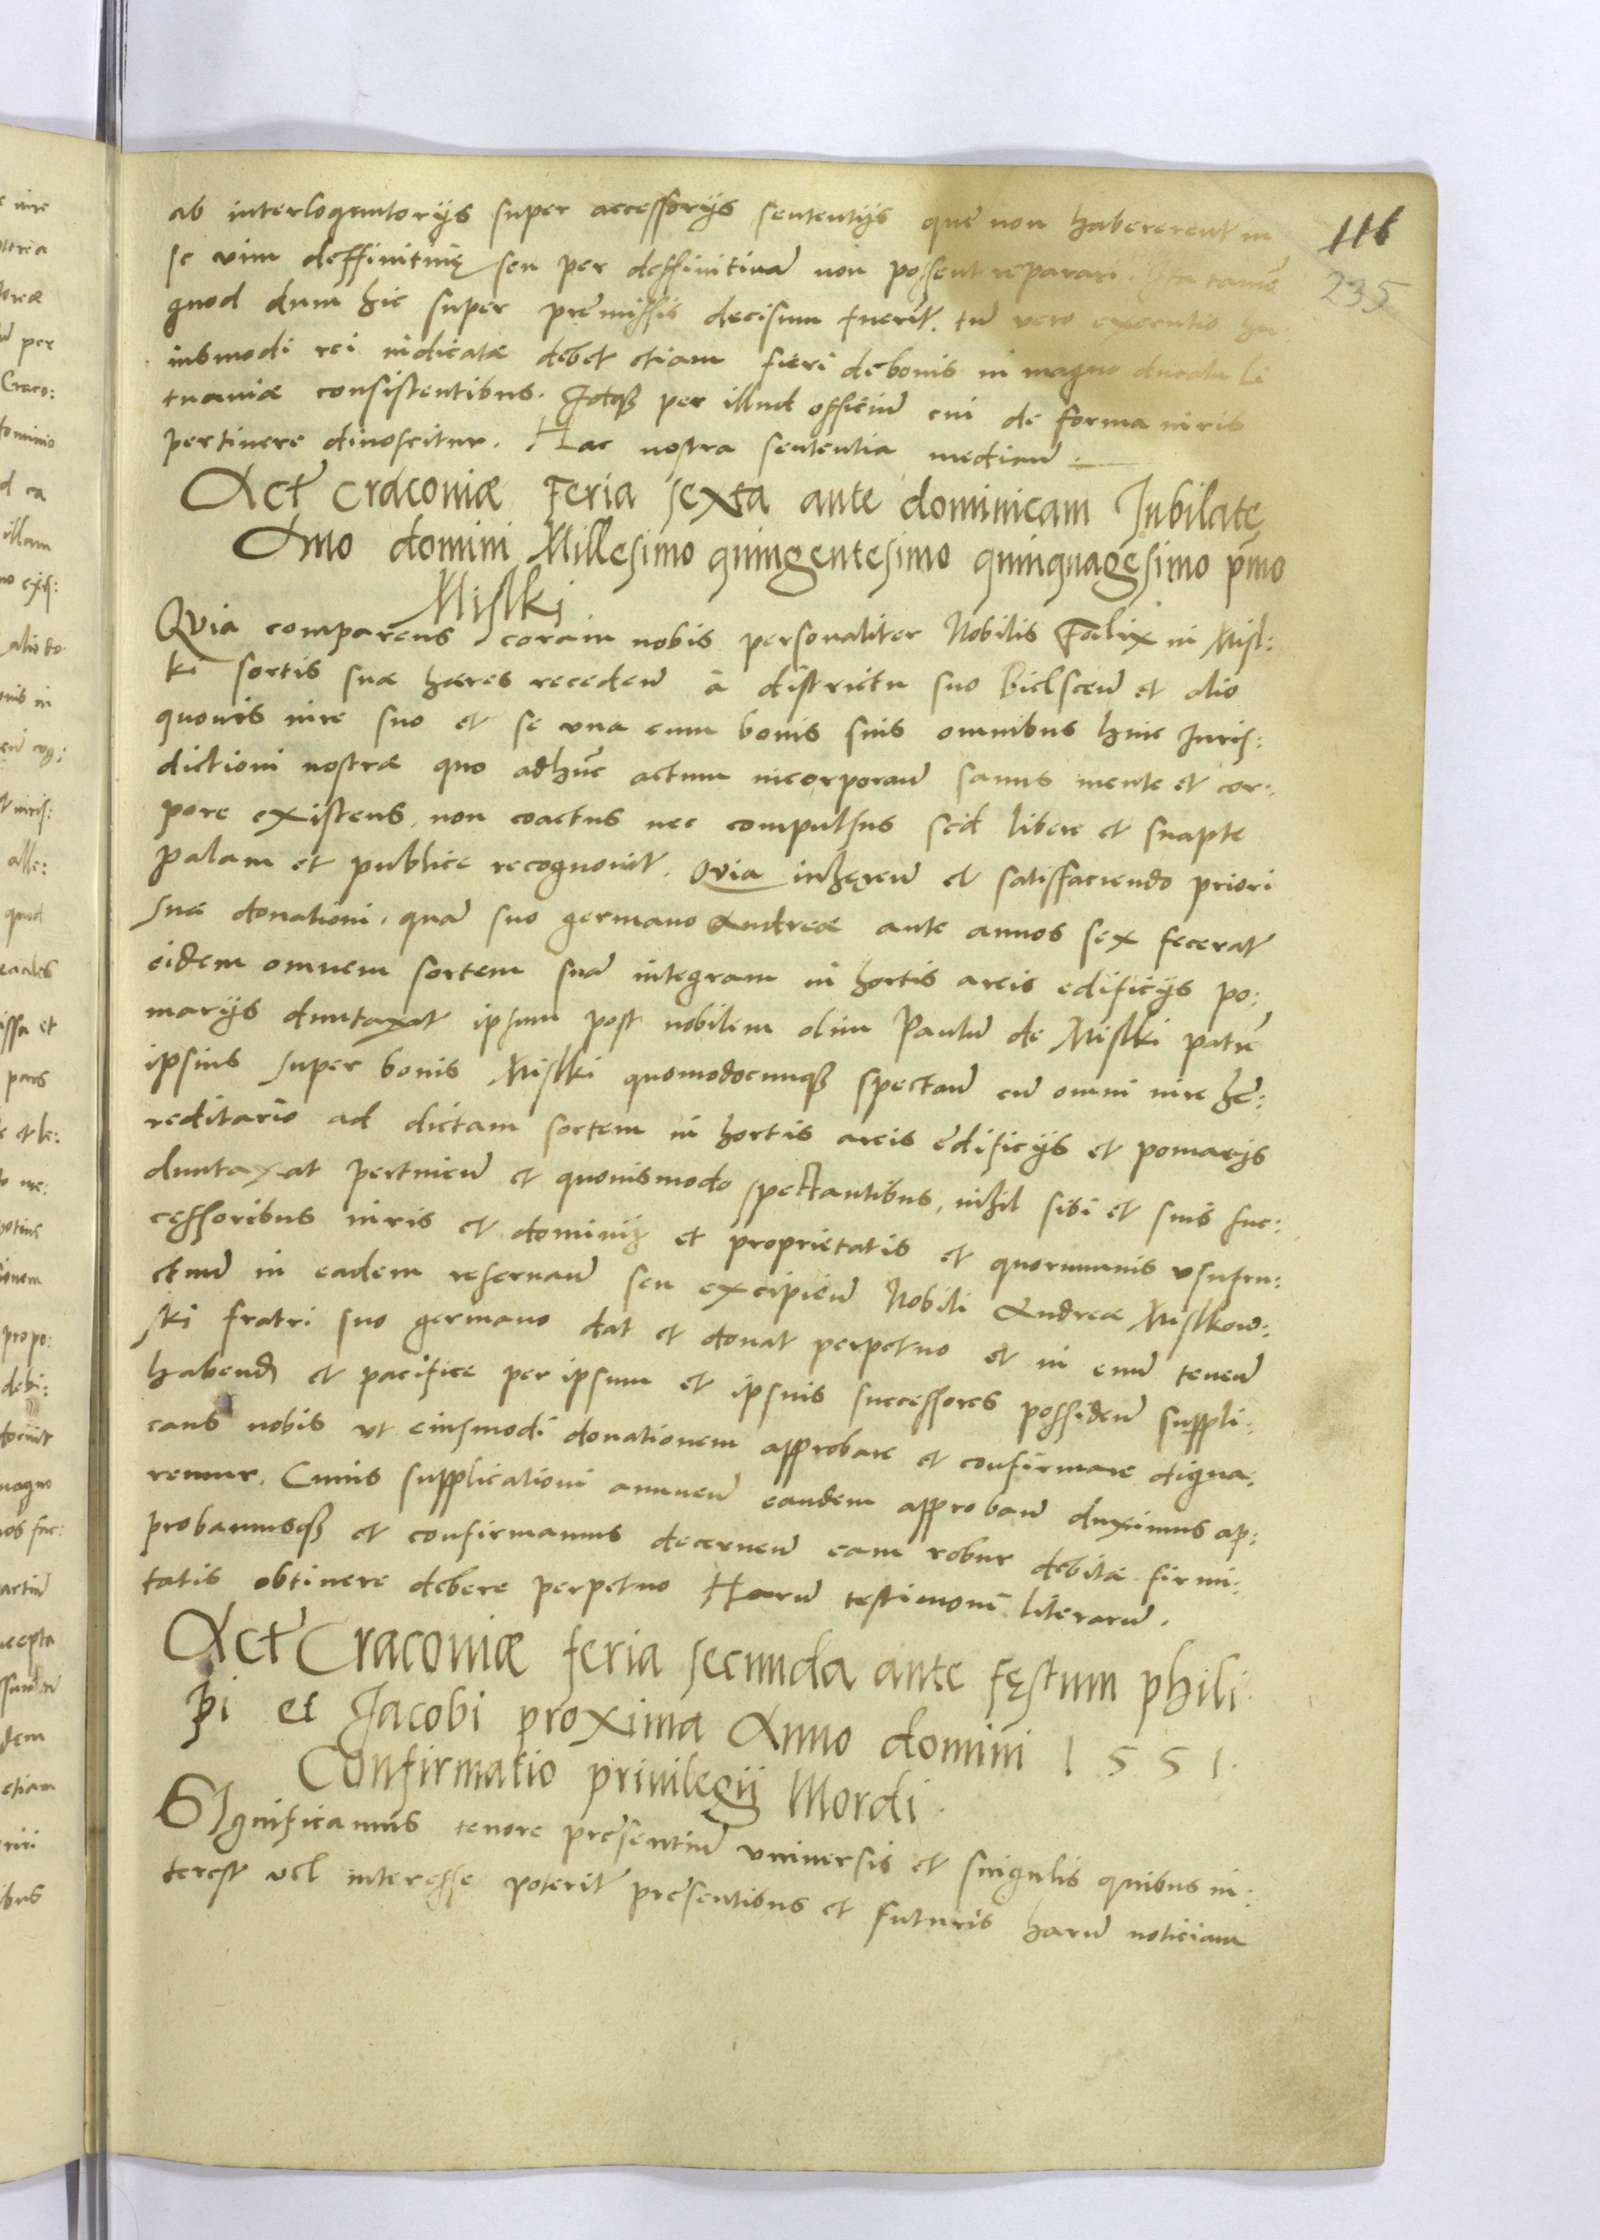 116
235
ab interloquutorijs super accessorijs sententijs que non habererent in
se vim deffinitivę seu per deffinitivā non possent reparari. Ita tamē
quod dum hic super premissis decisum fuerit. tū vero executio hu
iusmodi rei iudicatæ debet etiam fieri de bonis in magno ducatu Li
tuaniæ consistentibus. Idqȝ per illud officiū cui de forma iuris
pertinere dinoscitur. Hac nostra sententia median̄.
Act̄ Cracoviæ Feria sexta ante dominicam Iubilate
Anno domini Millesimo quingentesimo quinquagesimo p̄mo
Mislki
Quia comparens coram nobis personaliter Nobilis Fælix in Misl:
ki sortis suæ hæres receden̄ à districtu suo Bielscen̄ et alio
quovis iure suo et se vna cum bonis suis omnibus huic Iuris:
dictioni nostræ quo adhūc actum incorporan̄ sanus mente et cor:
pore existens, non coactus nec compulsus sed libere et suapte
palam et publice recognouit. Quia inhęren̄ et satisfaciendo priori
suæ donationi, quā suo germano Andreæ ante annos sex fecerat
eidem omnem sortem suā integram in hortis areis edificijs po:
marijs duntaxat ipsum post nobilem olim Paulū de Mislki patrē
ipsius super bonis Mislki quomodocunqȝ spectan̄ cū omni iure hę:
reditario ad dictam sortem in hortis areis edificijs et pomarijs
duntaxat pertinen̄ et quouismodo spectantibus, nihil sibi et suis suc:
cessoribus iuris et dominij et proprietatis et quorumuis vsufru:
ctuū in eadem reseruan̄ seu excipien̄ Nobili Andreæ Mislkow:
ski fratri suo germano dat et donat perpetuo et in euū tenen̄
habend̄ et pacifice per ipsum et ipsius successores possiden̄ suppli:
cans nobis vt eiusmodi donationem approbare et confirmare digna:
remur. Cuius supplicationi annuen̄ eandem approban̄ duximus ap:
probamusqȝ et confirmamus decernen̄ eam robur debitæ firmi:
tatis obtinere debere perpetuo Harū testimoniū literarum.
Act̄ Cracoviæ feria secunda ante fęstum phili
pi et Jacobi proxima Anno domini 1551.
Confirmatio priuilegij Mordi
SIgnificamus tenore presentiū vniuersis et singulis quibus in:
terest vel interesse poterit presentibus et futuris harū noticiam